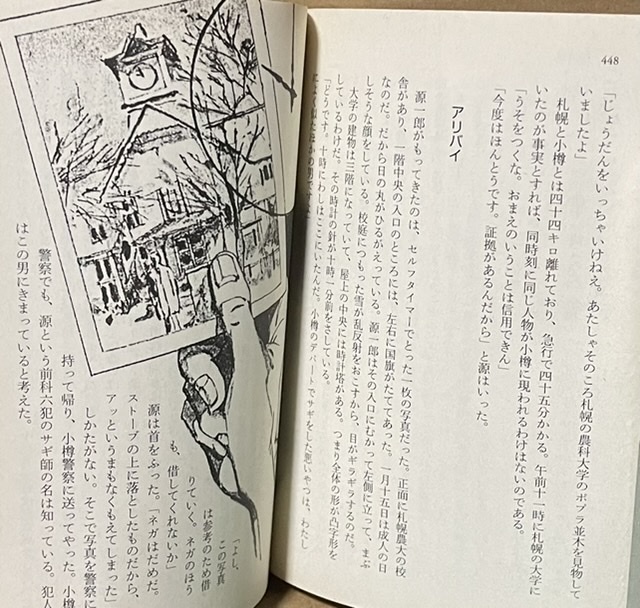 448
「じょうだんをいっちゃいけねえ。あたしゃそのころ札幌の農科大学のポプラ並木を見物して
いましたよ」
札幌と小樽とは四十四キロ離れており、急行で四十五分かかる。午前十一時に札幌の大学に
いたのが事実とすれば、同時刻に同じ人物が小樽に現われるわけはないのである。
「うそをつくな。おまえのいうことは信用できん」
「今度はほんとうです。証拠があるんだから」と源はいった。
アリバイ
源一郎がもってきたのは、セルフタイマーでとった一枚の写真だった。正面に札幌農大の校
舎があり、一階中央の入口のところには、左右に国旗がたててあった。一月十五日は成人の日
なのだ。だから日の丸がひるがえっている。源一郎はその入口にむかって左側に立って、まぶ
しそうな顔をしている。校庭につもった雪が乱反射をおこすから、目がギラギラするのだ。
大学の建物は三階になっていて、屋上の中央には時計塔がある。つまり全体の形が凸字形を
しているわけだ。その時計の針が十時一分前をさしている。
「どうです。十時にわしはここにいたんだ。小樽のデパートでサギをした悪いやつは、わたし
によく似たほかの男ですよ
「よし、
この写真
は参考のため借
りていく。ネガのほう
も、借してくれないか」
源は首をふった。「ネガはだめだ。
ストーブの上に落としたものだから、
アッというまもなくもえてしまった」
しかたがない。そこで写真を警察に
持って帰り、小樽警察に送ってやった。小樽
警察でも、源という前科六犯のサギ師の名は知っている。犯人
はこの男にきまっていると考えた。